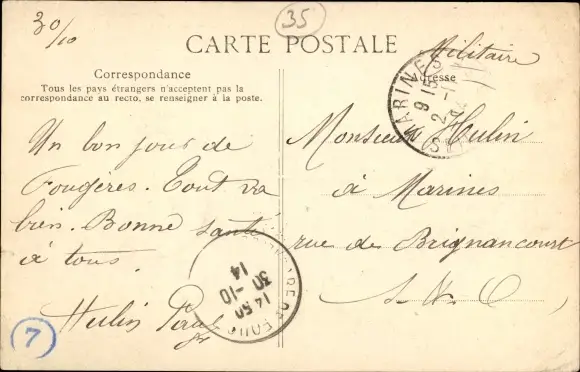 30/10
35
CARTE POSTALE
Militaire
Correspondance
Adresse
Tous les pays étrangers n'acceptent pas la
correspondance au recto, se renseigner à la poste.
MARINES
9 15
2
Un bon jour de
Fougères. Tout va
bien. Bonne santé
à tous.
Hulin Paul
Monsieur Hulin
à Marines
rue de Brignancourt
S & O
14 50
30 -10
14
7